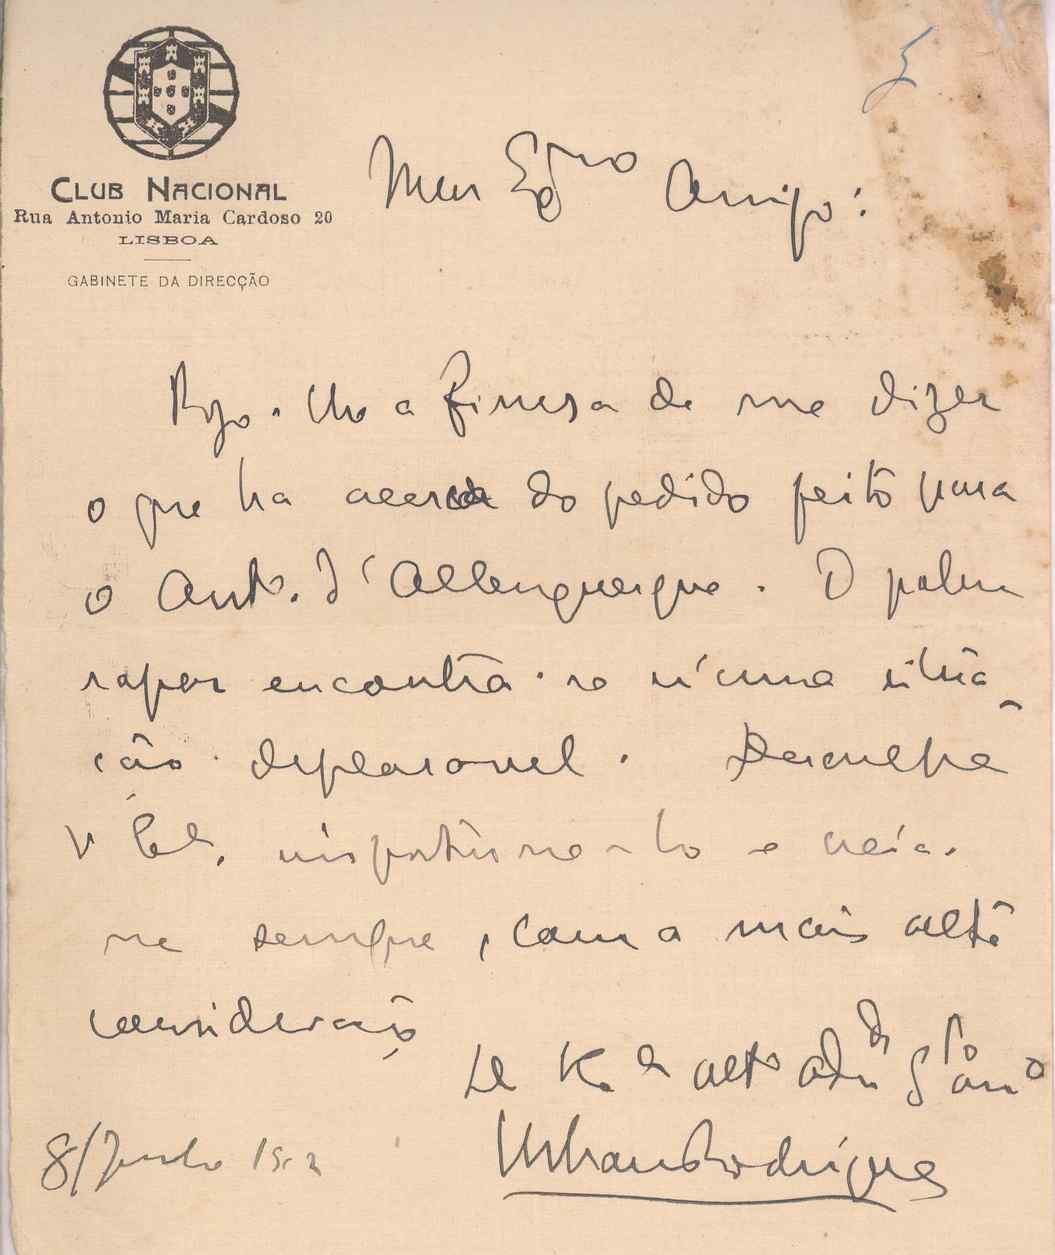 CLUB NACIONAL
Rua Antonio Maria Cardoso 20
LISBOA
GABINETE DA DIRECÇÃO
Meu Exmo Amigo:
Rogo-lhe a fineza de me dizer
o que ha acerca do pedido feito para
o Anto. d'Albuquerque. O pobre
rapaz encontra-se n'uma situa-
ção deploravel. Desculpe
V. importuna-lo e creia-
me sempre, com a mais alta
consideração
De V. alto
Urbano Rodrigues
8/Junho